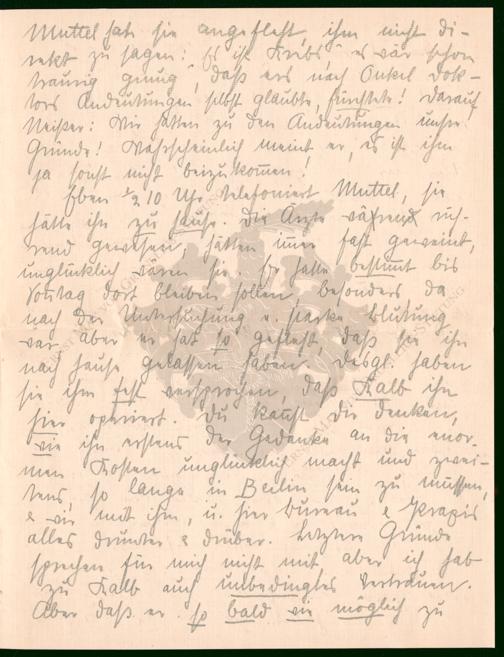 Muttel hat sie angefleht, ihm nicht di-
rekt zu sagen: "Es ist Krebs" es wär schon
traurig genug, daß ers nach Onkel Dok-
tors Andeutungen selbst glaubte, fürchtete! Darauf
Neißer: Wir hatten zu den Andeutungen unsre
Gründe! Wahrscheinlich meint er, es ist ihm
ja sonst nicht beizukommen!
Eben ½10 Uhr telefoniert Muttel, sie
hätte ihn zu Hause. Die Ärzte wären rüh-
rend gewesen, hätten immer fast geweint,
unglücklich waren sie. Er hatte bestimmt bis
dort bleiben sollen, besonders da
nach der Untersuchung e. starke Blutung
war aber er hat so gefleht, daß sie ihn
nach Hause gelassen haben. Desgl. haben
sie ihm fest versprochen, daß Kalb ihn
hier operiert. Du kannst Dir denken,
wie ihn erstens der Gedanke an die enor-
men Kosten unglücklich macht und zwei-
tens, so lange in Berlin sein zu müssen,
& wir mit ihm, u. hier Bureau & Praxis
alles drunter & drüber. Letztere Gründe
sprechen für mich nicht mit aber ich hab
zu Kalb auch unbedingtes Vertrauen.
Aber daß er so bald wie möglich zu